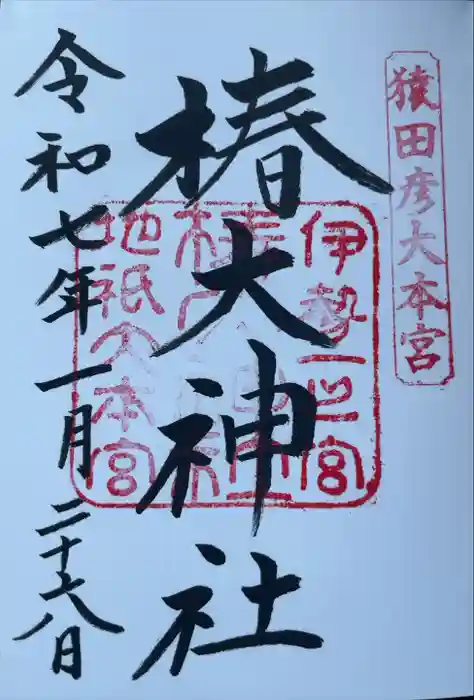 猿田彦大本宮
伊勢一之宮
椿大神社
地祇大本宮
椿大神社
令和七年一月二十六日